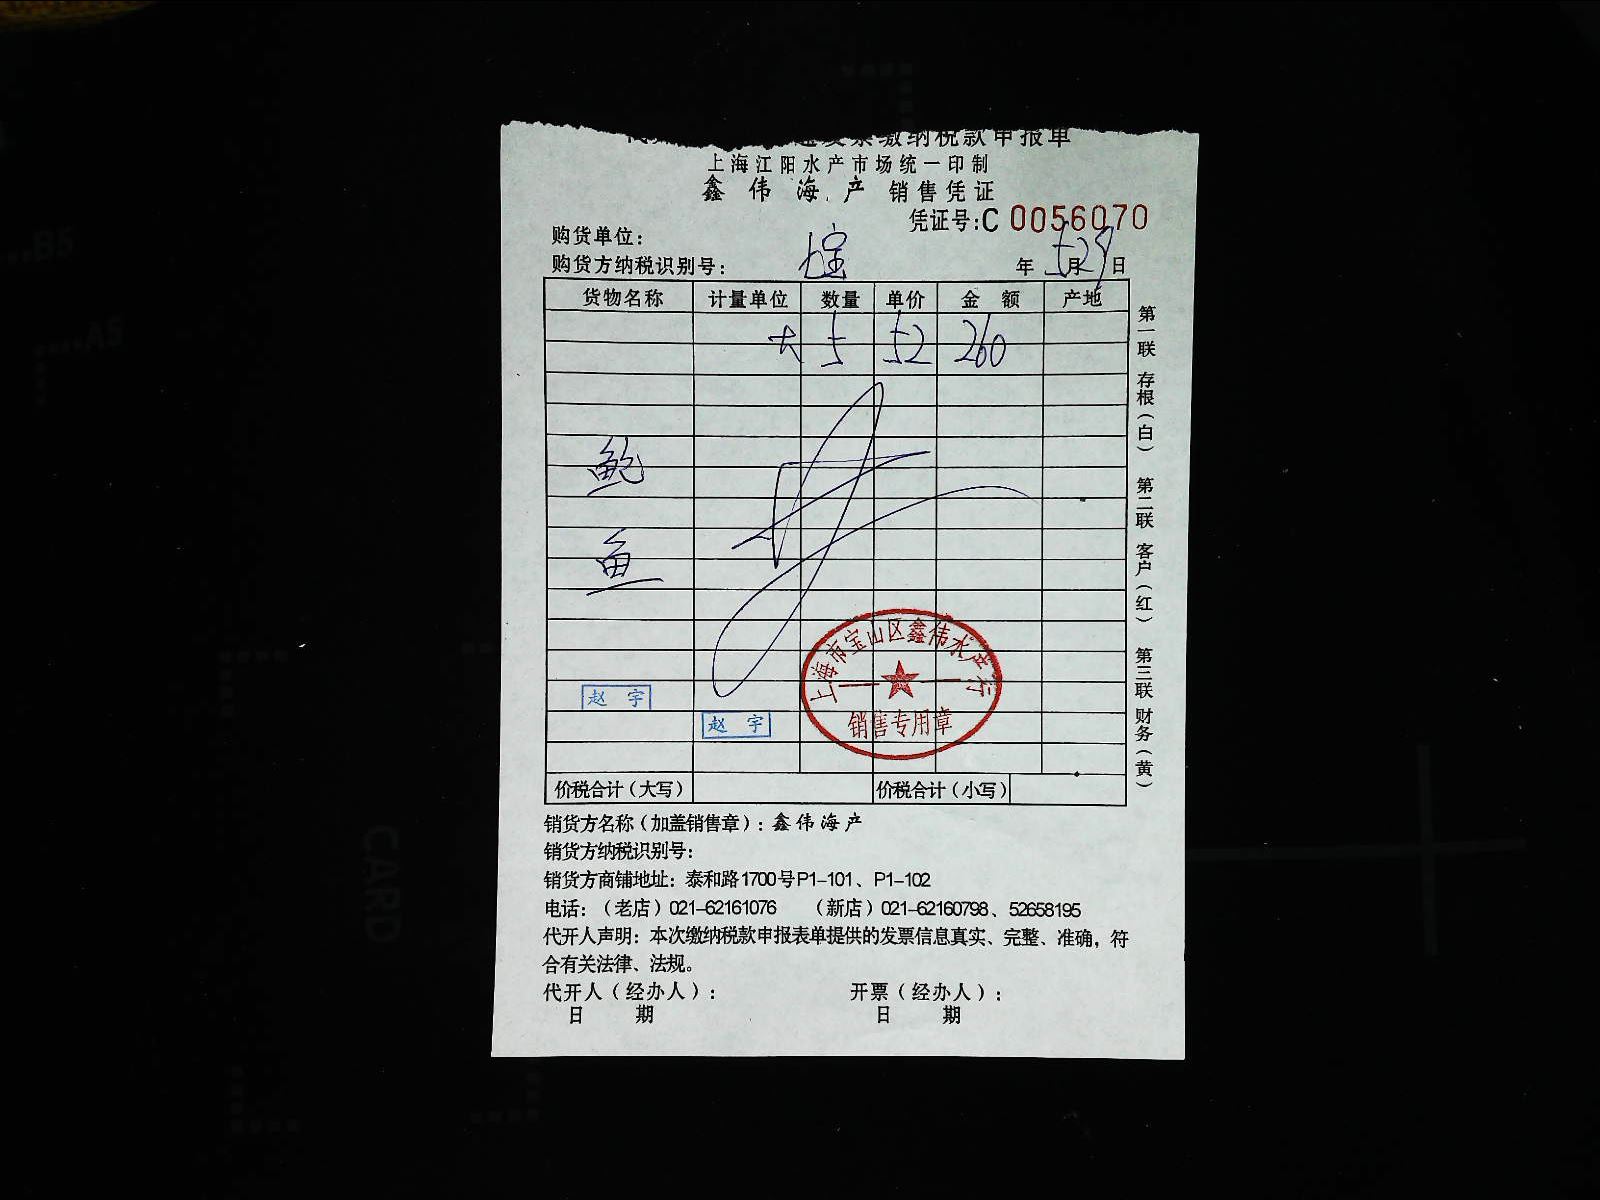 缴纳税款申报单
上海江阳水产市场统一印制
鑫伟海产 销售凭证
凭证号:C 0056070
购货单位:
购货方纳税识别号: 年 5月29日
货物名称 计量单位 数量 单价 金额 产地
大 5 52 260
鲍
鱼
赵宇
赵宇
上海市宝山区鑫伟水产行
销售专用章
价税合计(大写) 价税合计(小写)
第一联 存根(白) 第二联 客户(红) 第三联 财务(黄)
销货方名称(加盖销售章):鑫伟海产
销货方纳税识别号:
销货方商铺地址:泰和路1700号P1-101、P1-102
电话:(老店)021-62161076 (新店)021-62160798、52658195
代开人声明:本次缴纳税款申报表单提供的发票信息真实、完整、准确,符
合有关法律、法规。
代开人(经办人): 开票(经办人):
日 期 日 期
B5
A5
CARD